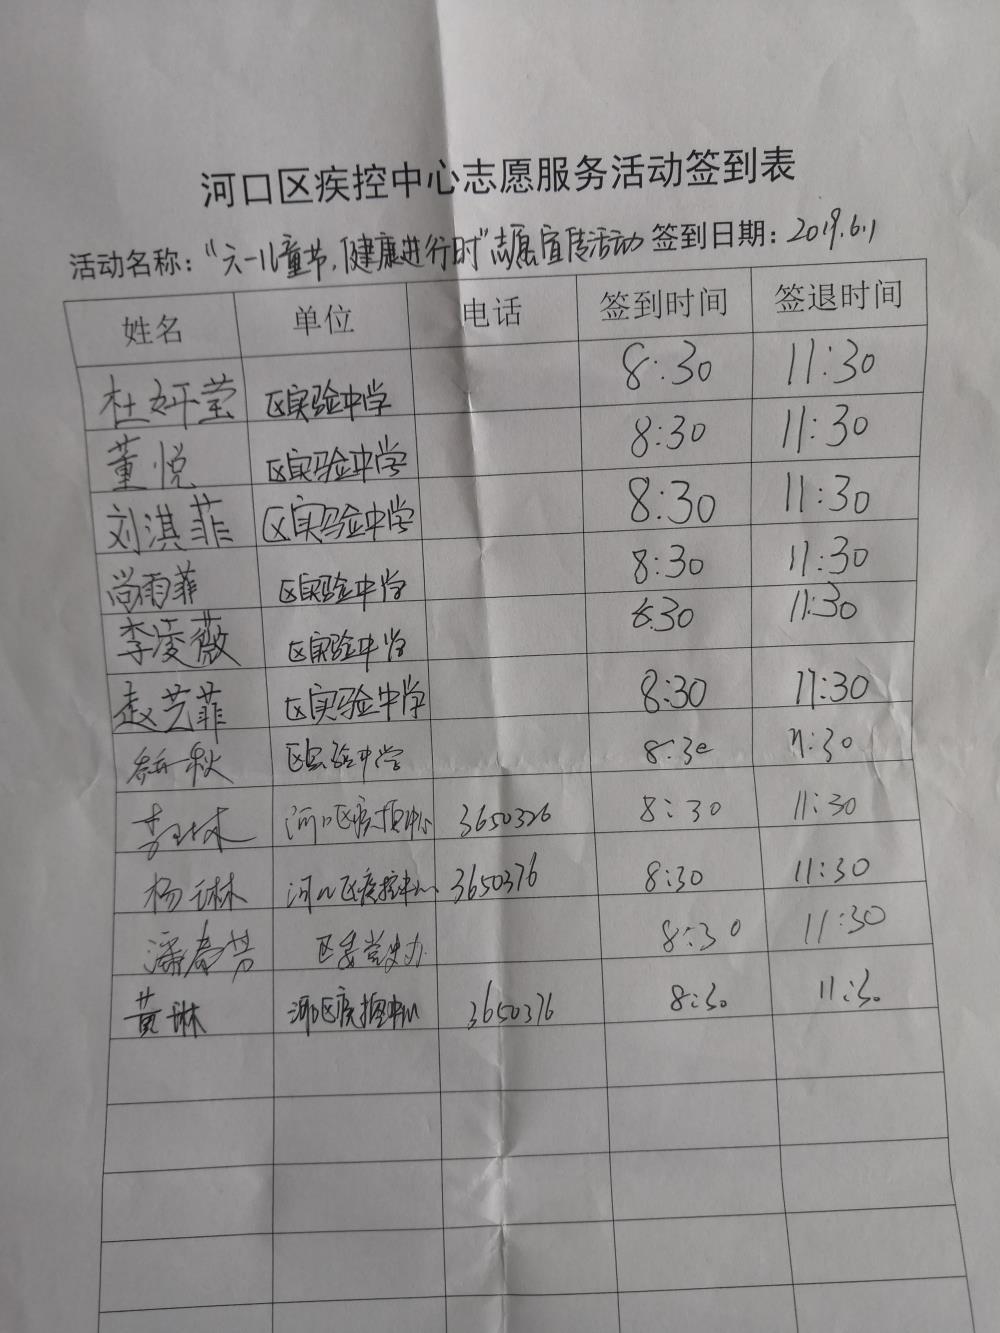 河口区疾控中心志愿服务活动签到表
活动名称："六一儿童节,健康进行时"志愿宣传活动 签到日期：2019.6.1
姓名 单位 电话 签到时间 签退时间
杜妍莹 区实验中学 8:30 11:30
董悦 区实验中学 8:30 11:30
刘淇菲 区实验中学 8:30 11:30
尚雨菲 区实验中学 8:30 11:30
李凌薇 区实验中学 8:30 11:30
赵艺菲 区实验中学 8:30 11:30
秋 区实验中学 8:30 11:30
河口区疾控中心 3650326 8:30 11:30
杨琳 河口区疾控中心 3650376 8:30 11:30
潘春芳 区委党史办 8:30 11:30
黄琳 河口区疾控中心 3650376 8:30 11:30